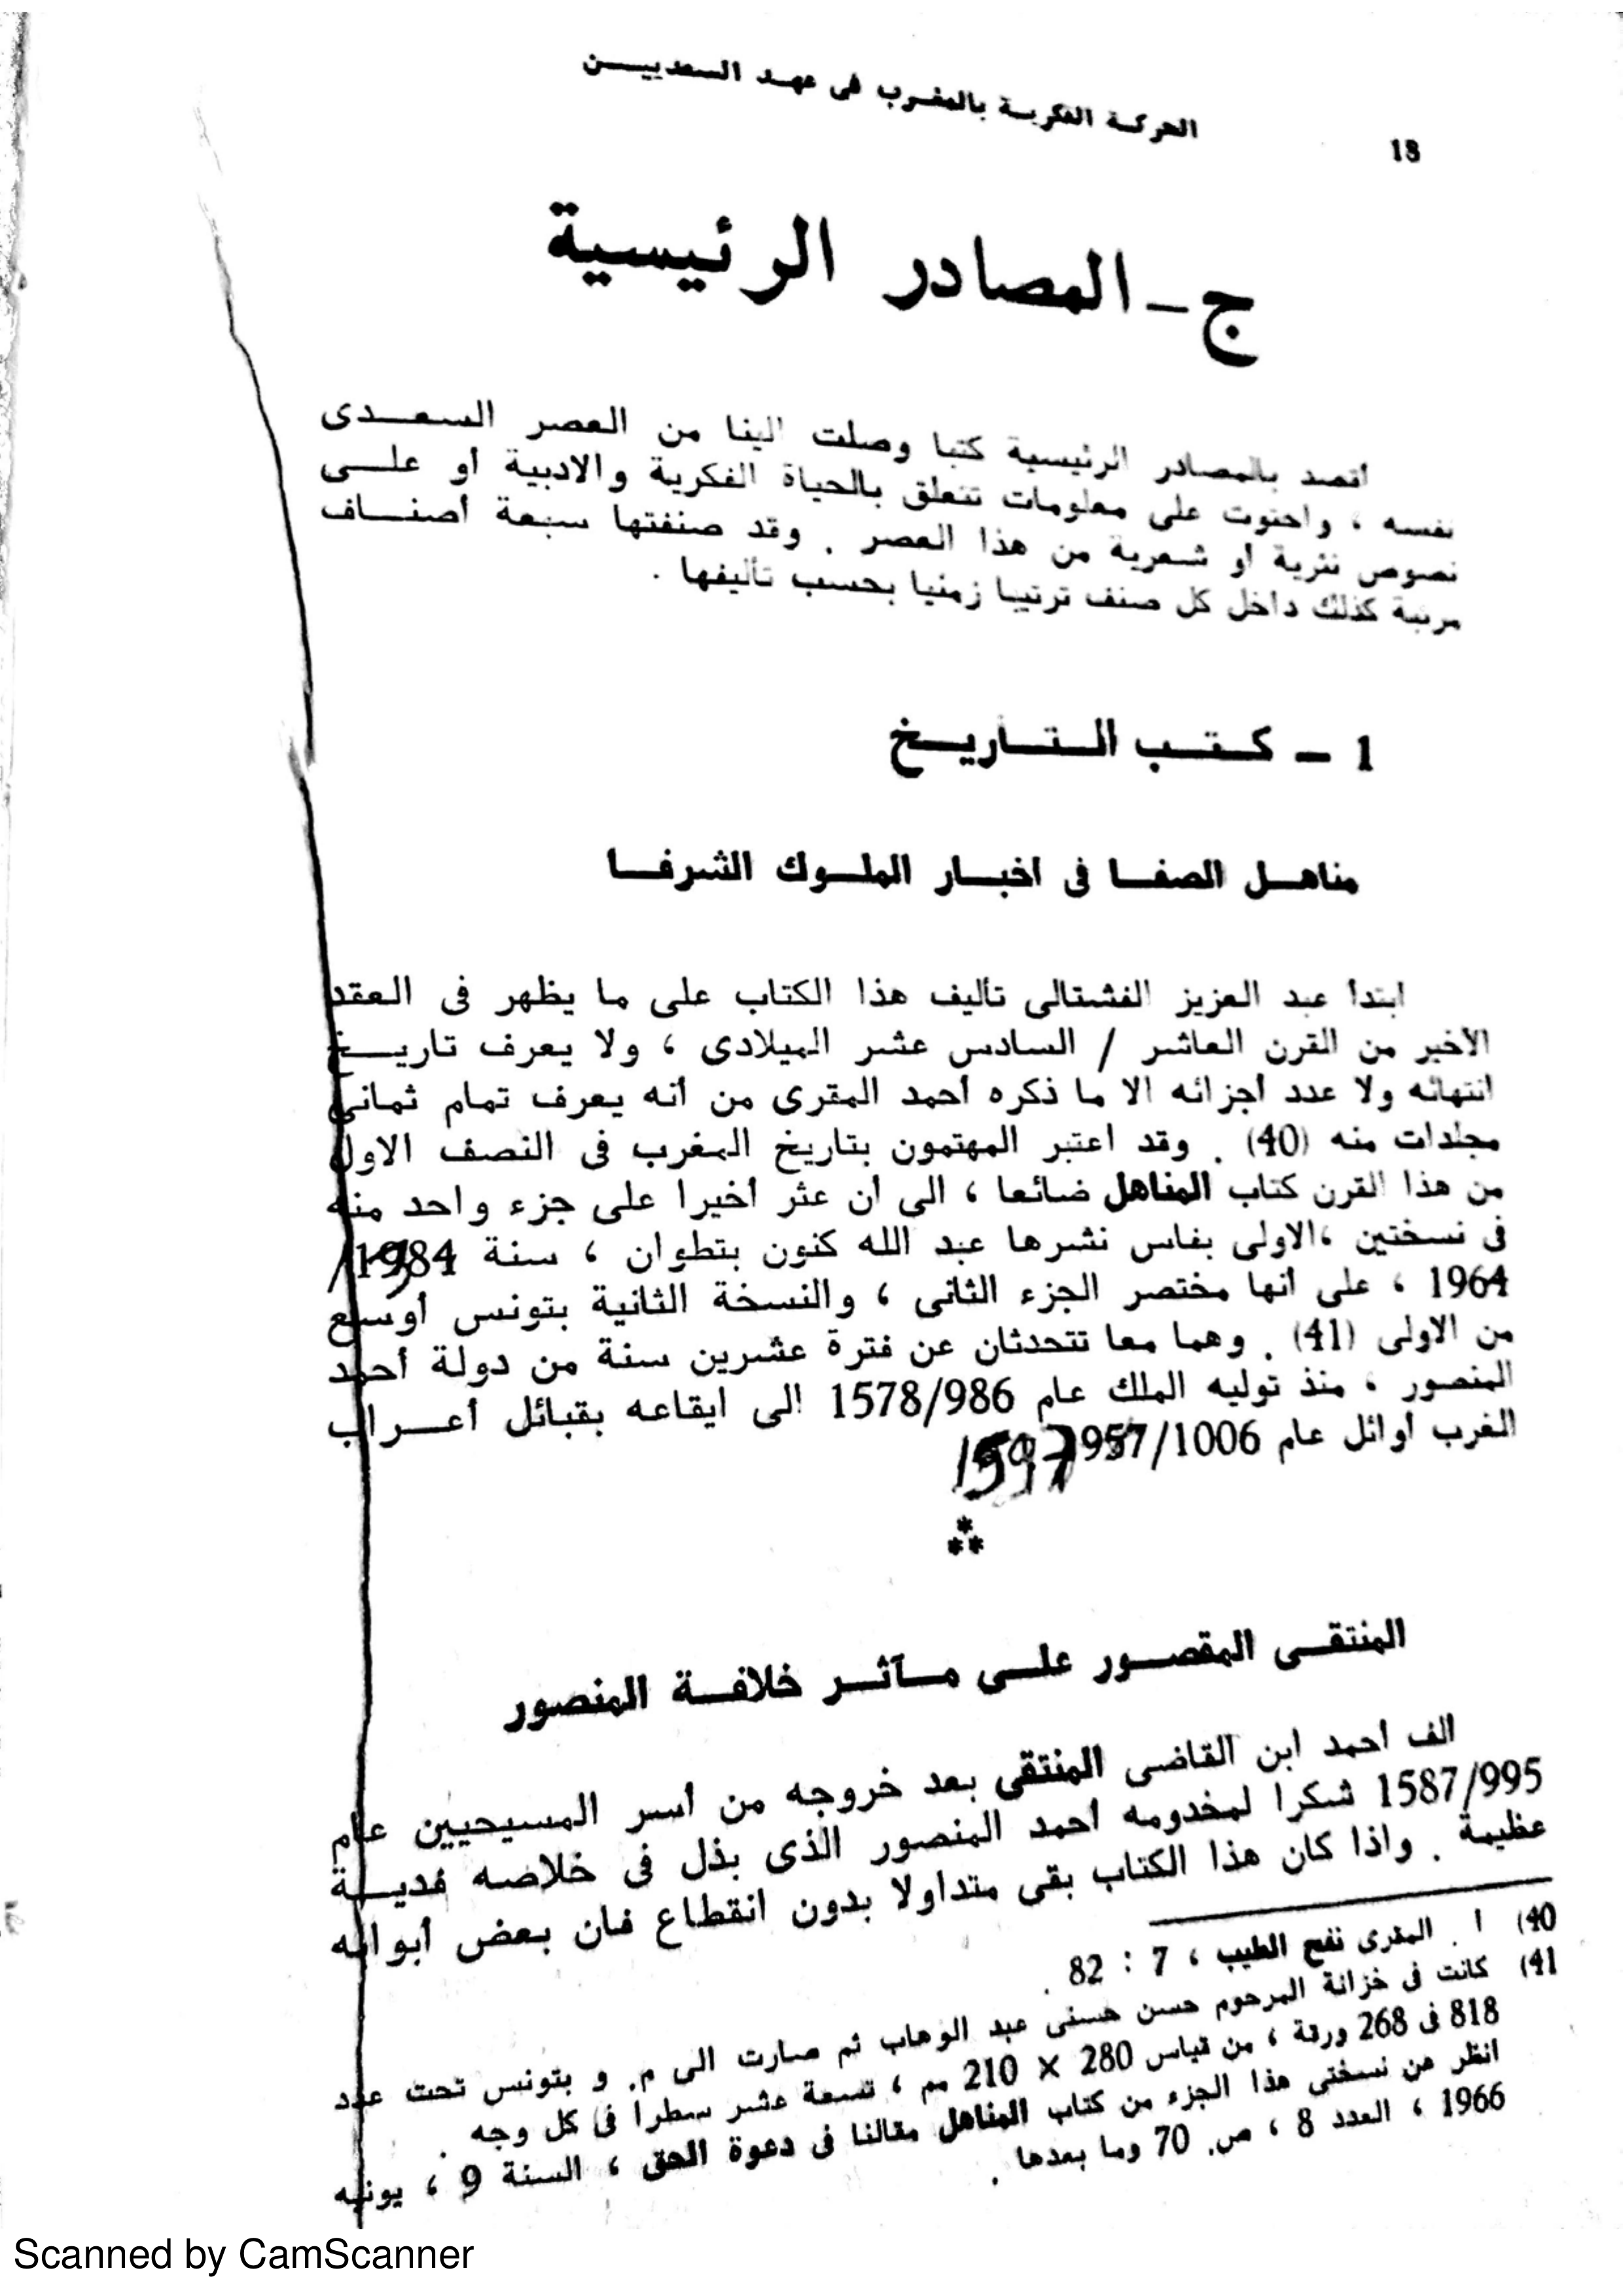 18
الحركة الفكرية بالمغرب فى عهد السعديين
ج - المصادر الرئيسية
أقصد بالمصادر الرئيسية كتبا وصلت الينا من العصر السعدى
نفسه ، واحتوت على معلومات تتعلق بالحياة الفكرية والادبية أو على
نصوص نثرية أو شعرية من هذا العصر . وقد صنفتها سبعة أصناف
مرتبة كذلك داخل كل صنف ترتيبا زمنيا بحسب تأليفها .
1 - كتب التاريخ
مناهل الصفا فى اخبار الملوك الشرفا
ابتدأ عبد العزيز الفشتالى تأليف هذا الكتاب على ما يظهر فى العقد
الأخير من القرن العاشر / السادس عشر الميلادى ، ولا يعرف تاريخ
انتهائه ولا عدد أجزائه الا ما ذكره أحمد المقرى من أنه يعرف تمام ثمانى
مجلدات منه (40) . وقد اعتبر المهتمون بتاريخ المغرب فى النصف الاول
من هذا القرن كتاب المناهل ضائعا ، الى أن عثر أخيرا على جزء واحد منه
فى نسختين ،الاولى بفاس نشرها عبد الله كنون بتطوان ، سنة 1984/
1964 ، على أنها مختصر الجزء الثانى ، والنسخة الثانية بتونس أوسع
من الاولى (41) . وهما معا تتحدثان عن فترة عشرين سنة من دولة أحمد
المنصور ، منذ توليه الملك عام 1578/986 الى ايقاعه بقبائل أعراب
الغرب أوائل عام 1957/1006
1597
***
المنتقى المقصور على مآثر خلافة المنصور
الف أحمد ابن القاضى المنتقى بعد خروجه من أسر المسيحيين عام
1587/995 شكرا لمخدومه أحمد المنصور الذى بذل فى خلاصه فدية
عظيمة . واذا كان هذا الكتاب بقى متداولا بدون انقطاع فان بعض أبوابه
40) أ . المقرى نفح الطيب ، 7 : 82 .
41) كانت فى خزانة المرحوم حسن حسنى عبد الوهاب ثم صارت الى م. و بتونس تحت عدد
818 فى 268 ورقة ، من قياس 280 × 210 مم ، تسعة عشر سطرا فى كل وجه .
انظر عن نسختى هذا الجزء من كتاب المناهل مقالنا فى دعوة الحق ، السنة 9 ، يونيه
1966 ، العدد 8 ، ص. 70 وما بعدها .
Scanned by CamScanner